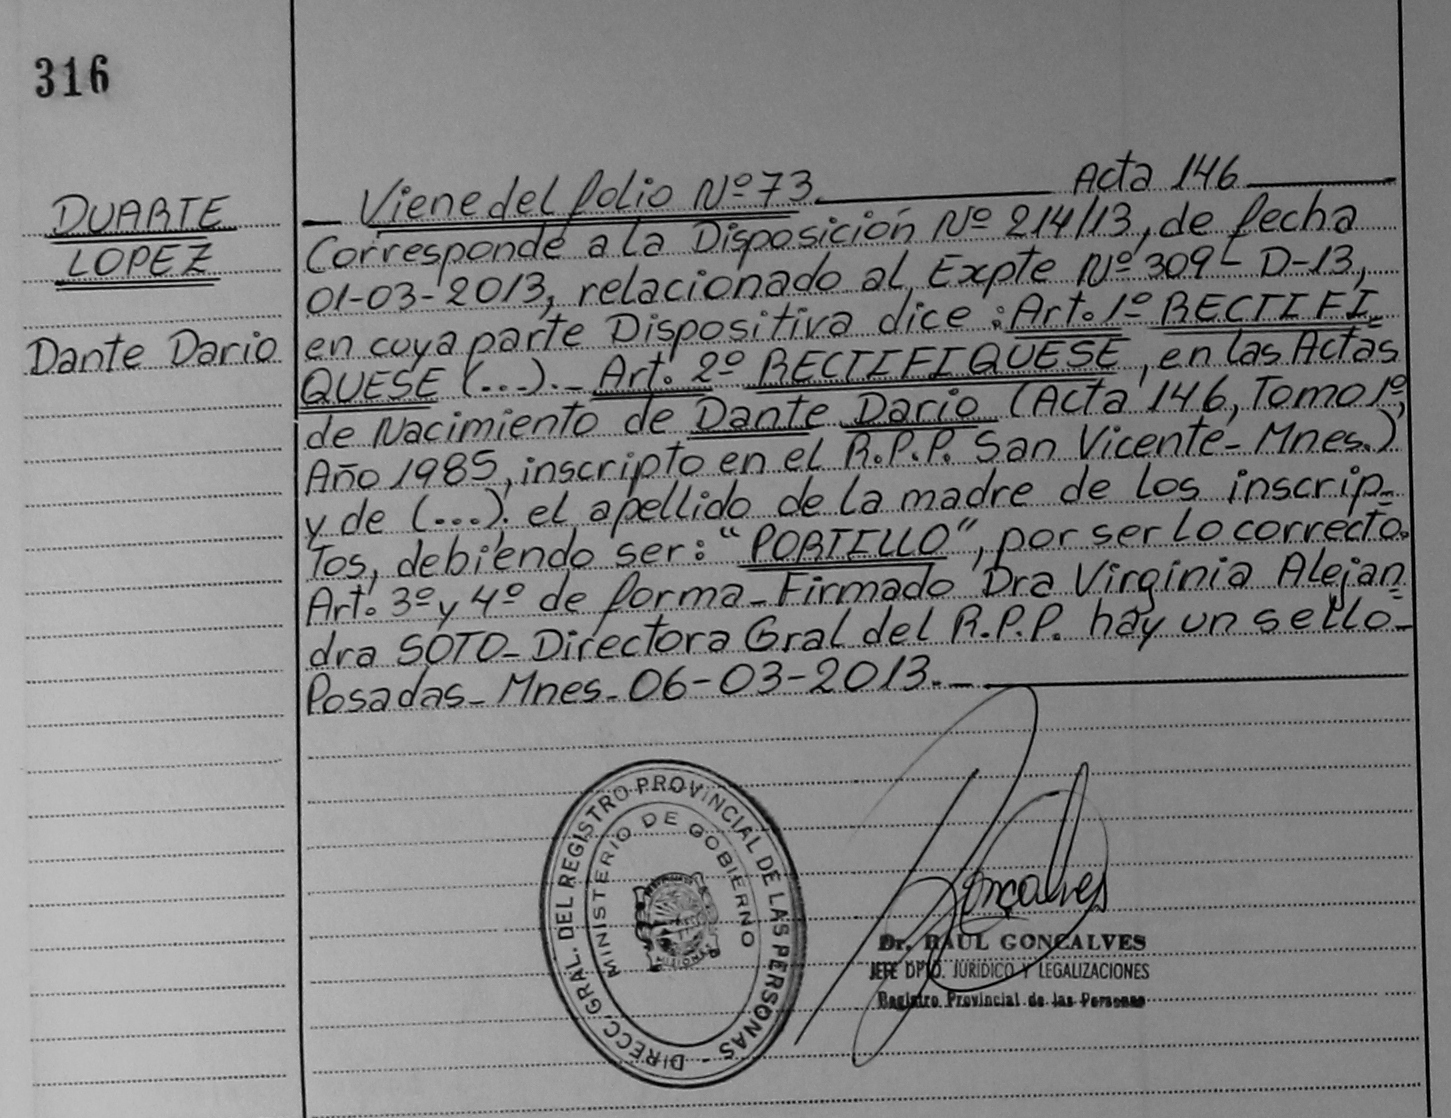 316
DUARTE
LOPEZ
Dante Dario
Viene del folio Nº 73. Acta 146
Corresponde a la Disposición Nº 214/13, de fecha
01-03-2013, relacionado al Expte Nº 309- D-13,
en cuya parte Dispositiva dice: Art. 1º RECTIFI
QUESE (...)._ Art. 2º RECTIFIQUESE, en las Actas
de Nacimiento de Dante Dario (Acta 146, Tomo 1º,
Año 1985, inscripto en el R.P.P. San Vicente- Mnes.)
y de (...). el apellido de la madre de los inscrip-
tos, debiendo ser: "PORTILLO", por ser lo correcto.
Art. 3º y 4º de forma_ Firmado Dra Virginia Alejan
dra SOTO_ Directora Gral del R.P.P. hay un sello_
Posadas_ Mnes_ 06-03-2013._
DIREC. GRAL. DEL REGISTRO PROVINCIAL DE LAS PERSONAS -
MINISTERIO DE GOBIERNO
MISIONES
Gonçalves
Dr. RAUL GONCALVES
JEFE DPTO. JURIDICO Y LEGALIZACIONES
Registro Provincial de las Personas